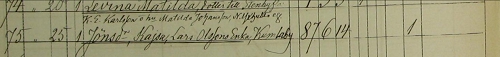 74 " 20 1 Levina Matilda, dotter till Stenby
K. E. Karlsson o. hu. Matilda Johansson, N.
75 " 25 1 Jönsdr, Kajsa, Lars Olssons Enka, Kumlaby 87 6 14 1